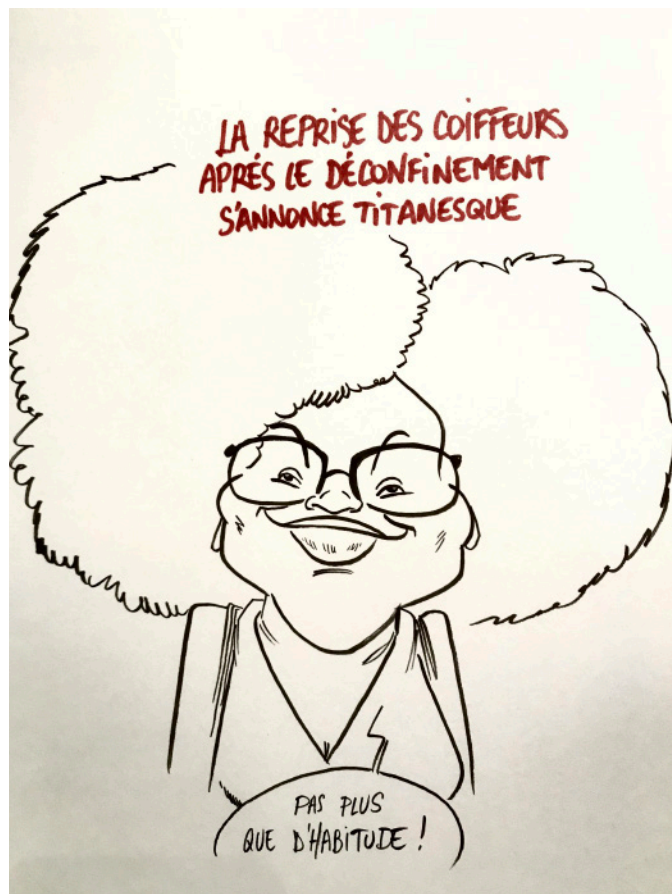 LA REPRISE DES COIFFEURS
APRÉS LE DÉCONFINEMENT
S'ANNONCE TITANESQUE
PAS PLUS
QUE D'HABITUDE !